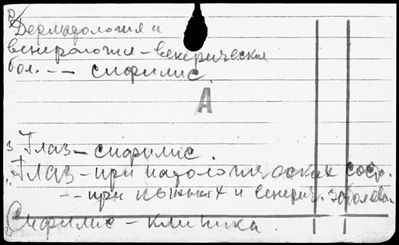 2/ Дерматология и
венерология – венерическия
бол. –– сифилис.
А
3 Глаз – сифилис.
Глаз – при патологических сост.
–– при кожных и венерич. заболева.
Сифилис – клиника.